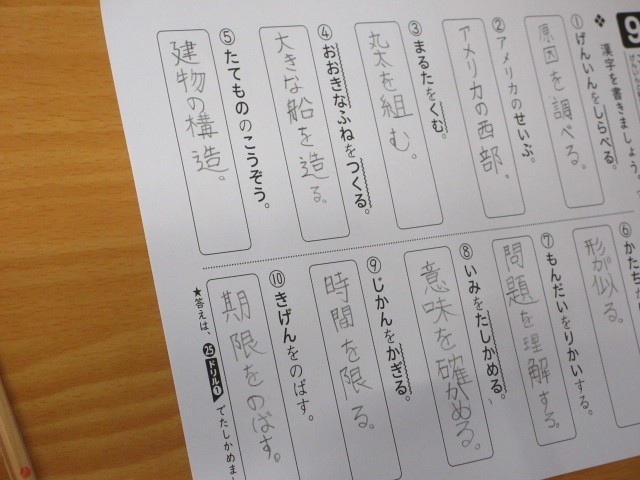 9
漢字を書きましょう。
①げんいんをしらべる。
原因を調べる。
②アメリカのせいぶ。
アメリカの西部。
③まるたをくむ。
丸太を組む。
④おおきなふねをつくる。
大きな船を造る。
⑤たてもののこうぞう。
建物の構造。
⑥かたち
形が似る。
⑦もんだいをりかいする。
問題を理解する。
⑧いみをたしかめる。
意味を確かめる。
⑨じかんをかぎる。
時間を限る。
⑩きげんをのばす。
期限をのばす。
★答えは、25ドリル①でたしかめま